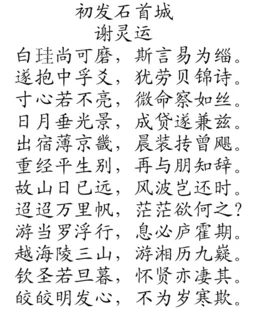 初发石首城
谢灵运
白珪尚可磨，斯言易为缁。
遂抱中孚爻，犹劳贝锦诗。
寸心若不亮，微命察如丝。
日月垂光景，成贷遂兼兹。
出宿薄京畿，晨装抟曾飔。
重经平生别，再与朋知辞。
故山日已远，风波岂还时。
迢迢万里帆，茫茫欲何之？
游当罗浮行，息必庐霍期。
越海陵三山，游湘历九嶷。
钦圣若旦暮，怀贤亦凄其。
皎皎明发心，不为岁寒欺。